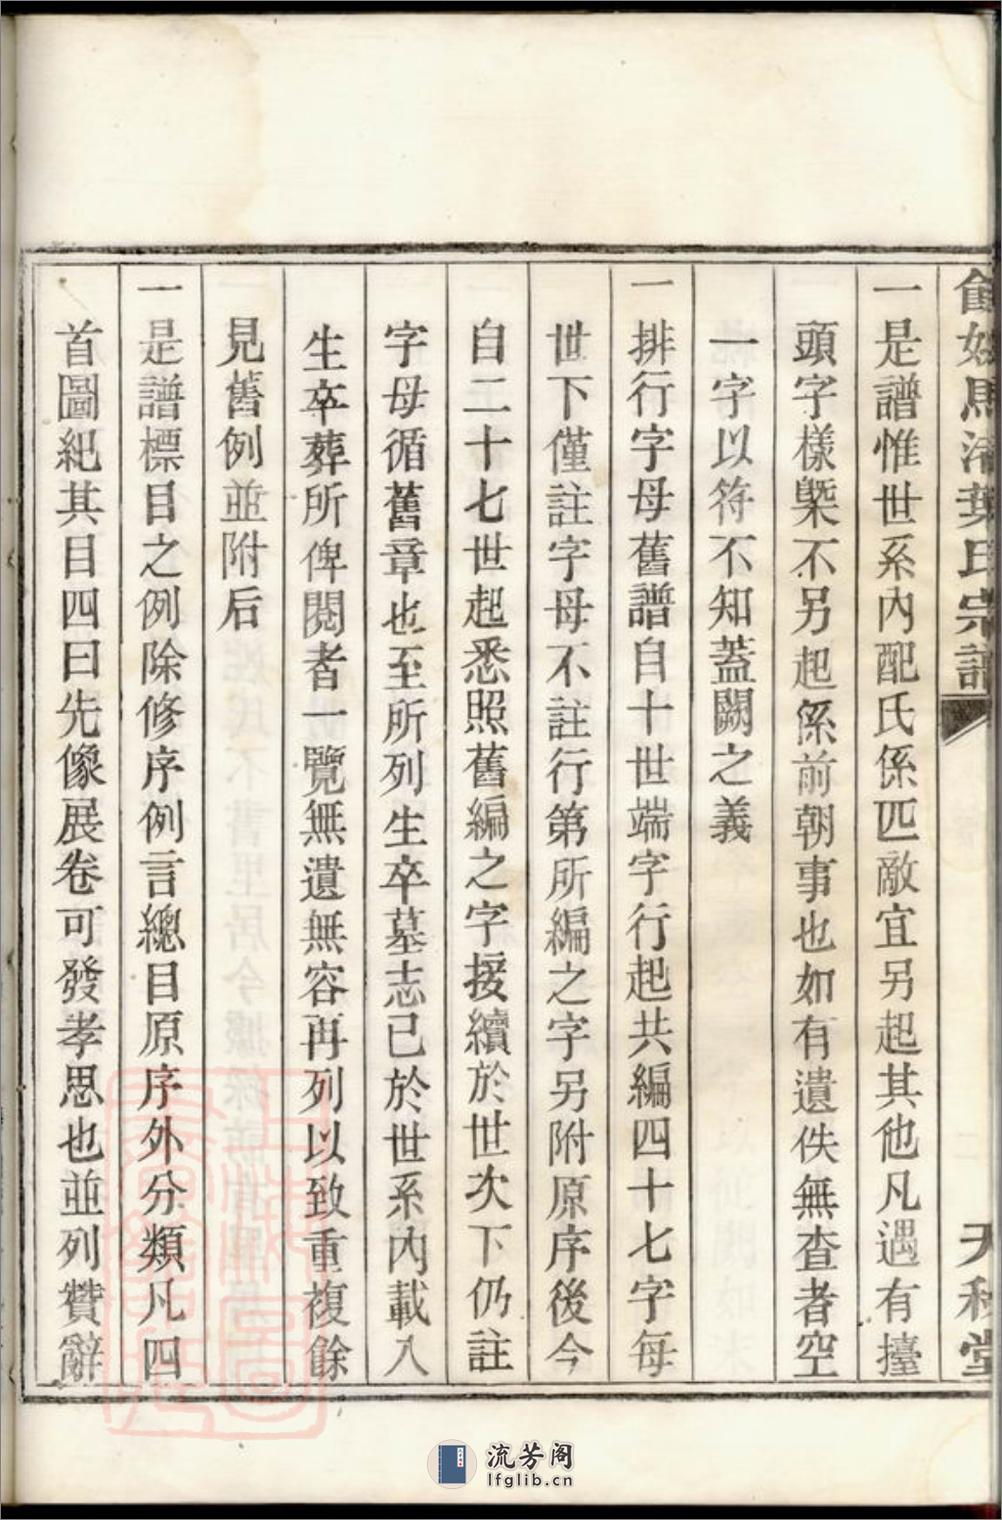 一是譜惟世系內配氏係匹敵宜另起其他凡遇有擡
頭字樣槩不另起係前朝事也如有遺佚無查者空
一字以符不知蓋闕之義
一排行字母舊譜自十世端字行起共編四十七字每
世下僅註字母不註行第所編之字另附原序後今
自二十七世起悉照舊編之字接續於世次下仍註
字母循舊章也至所列生卒墓志已於世系內載入
生卒葬所俾閱者一覽無遺無容再列以致重複餘
見舊例並附后
一是譜標目之例除修序例言總目原序外分類凡四
首圖紀其目四曰先像展卷可發孝思也並列贊辭
流芳阁
lfglib.cn